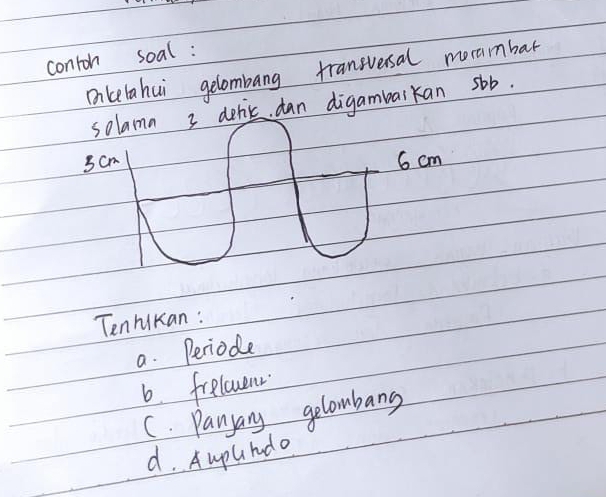 contoh soal :
Diketahui gelombang transversal merambat
selama 3 detik dan digambarkan sbb .
3 cm
6 cm
Tentukan :
a. Periode
b. frekuensi
c. Panjang gelombang
d. Amplitudo